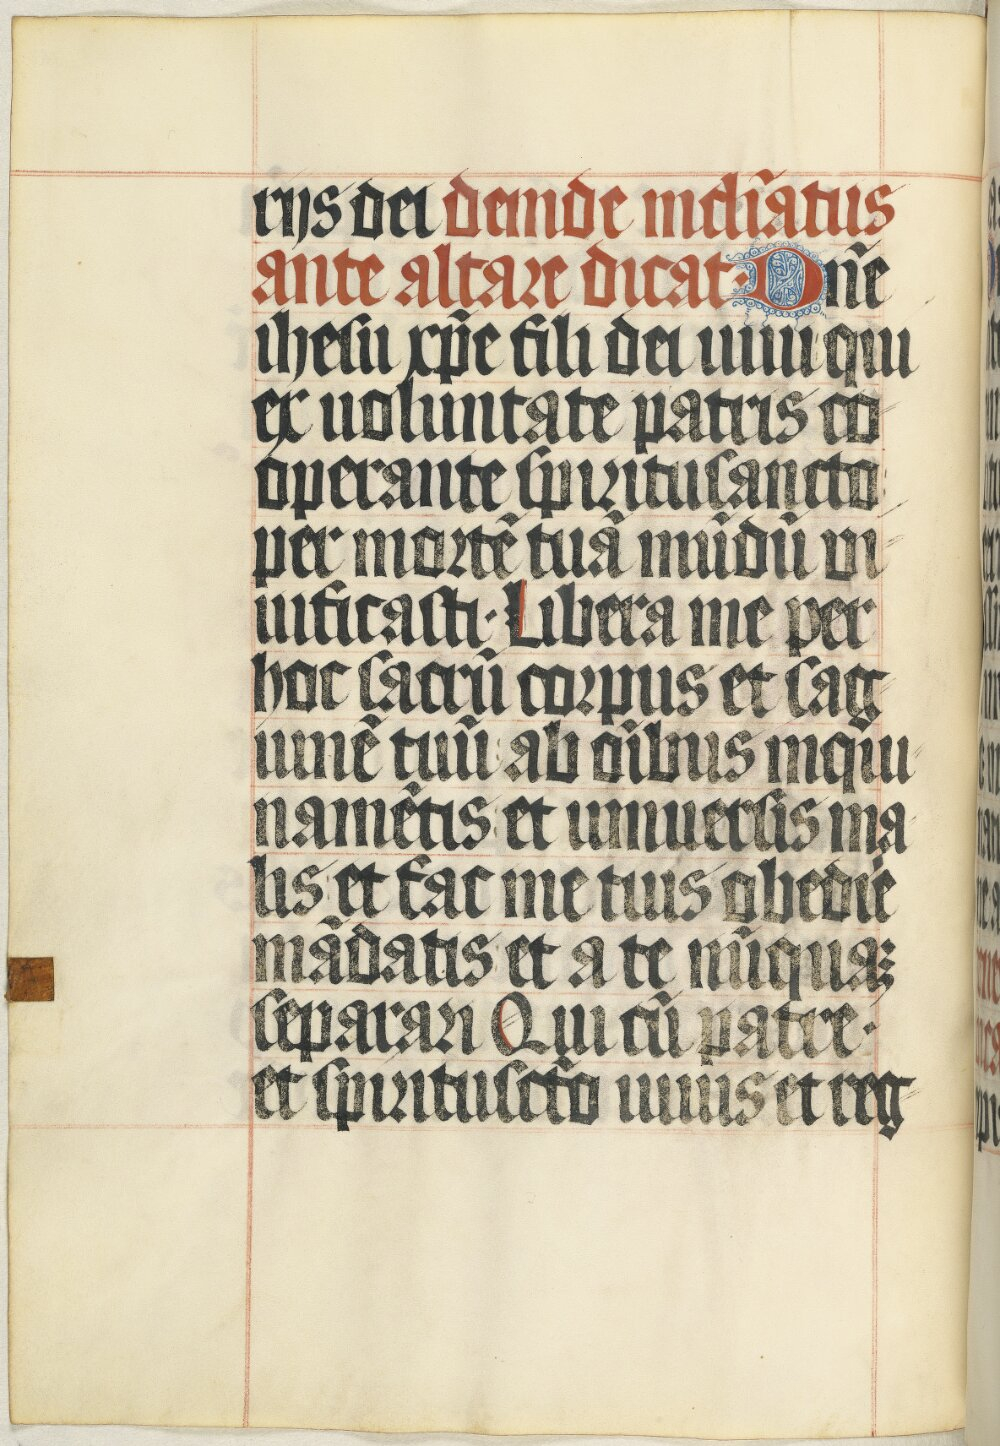 rijs dei deinde incli̅atus
ante altare dicat· Dn̅e
ihesu xp̅e fili dei uiui qui
ex uoluntate patris co
operante spiritusancto
per morte̅ tua̅ mu̅du̅ vi
uificasti· Libera me per
hoc sacru̅ corpus et sag
uine̅ tuu̅ ab o̅ibus inqui
name̅tis et uniuersis ma
lis et fac me tuis obedie̅
ma̅datis et a te nu̅quaꝫ
separari Qui cu̅ patre·
et spiritusct̅o uiuis et reg